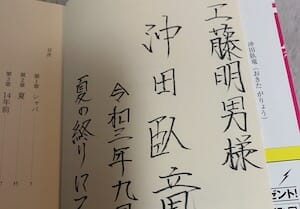 沖田臥竜（おきた がりょう）
工藤明男様
沖田臥竜
令和三年九月
夏の終りに
目次
第1章 シャバ
第2章 夏
第3章 14年前
ゼント!